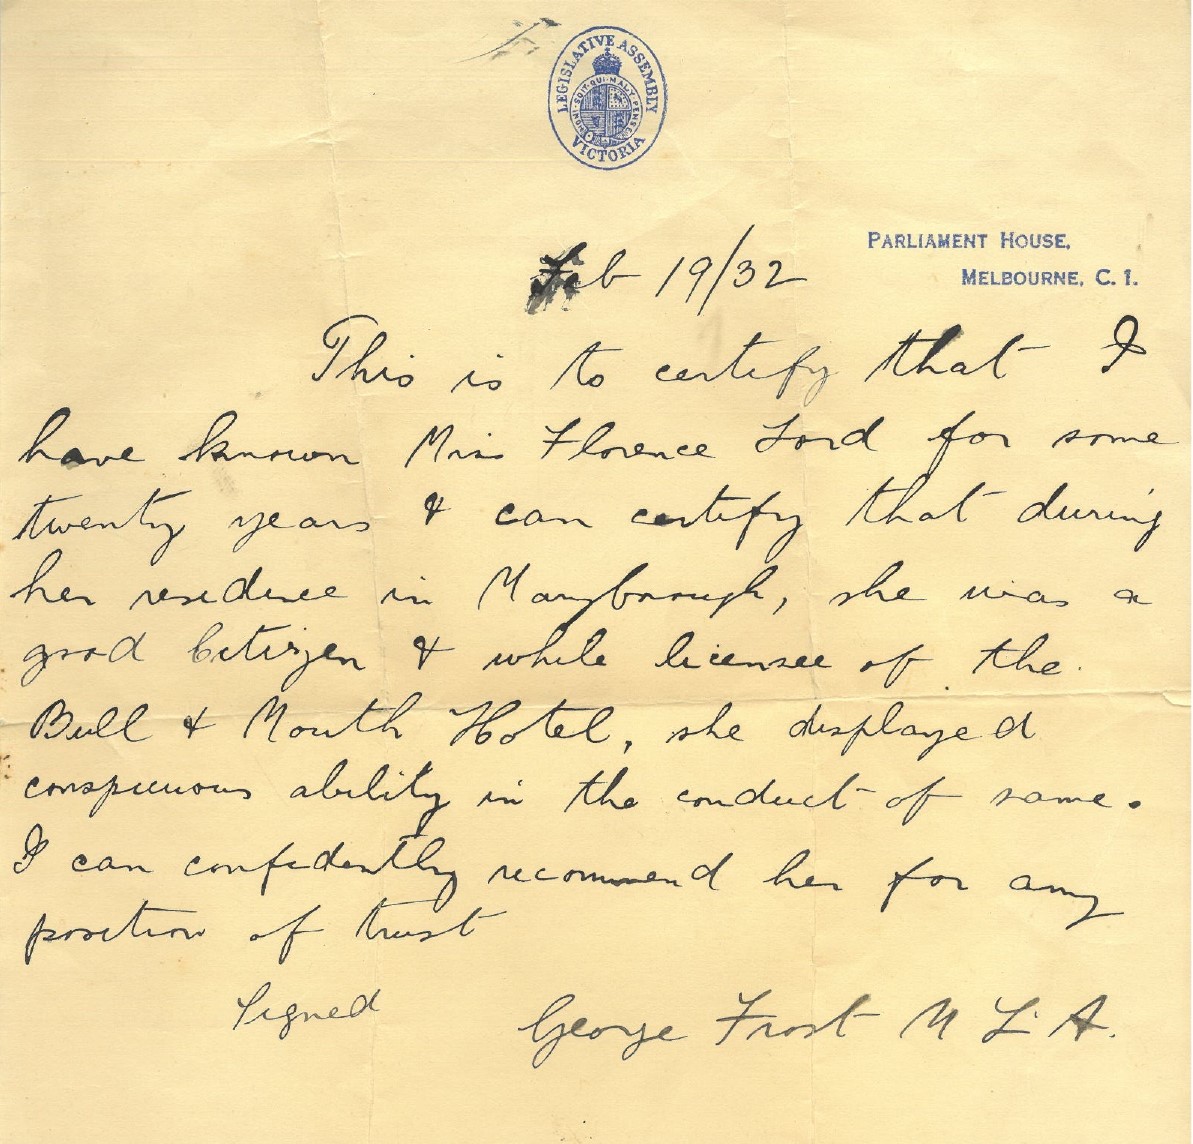 LEGISLATIVE ASSEMBLY
HONI·SOIT·QUI·MALY·PENSE
VICTORIA
PARLIAMENT HOUSE,
MELBOURNE, C. 1.
Feb 19/32
This is to certify that I
have known Miss Florence Lord for some
twenty years & can certify that during
her residence in Maryborough, she was a
good Citizen & while licensee of the
Bull & Mouth Hotel, she displayed
conspicuous ability in the conduct of same.
I can confidently recommend her for any
position of trust
Signed
George Frost M L A.